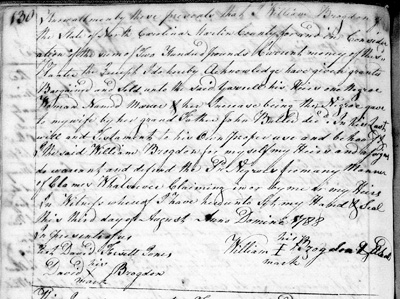 130 Know all men by these presents that I William Brogdon of
the State of North Carolina Martin County for and in Consider
ation of the sum of Two Hundred pounds Current money of this
State I hereby Acknowledge have given granted
Bargained and Sold unto the said his Heirs one Negroe
Woman Named & her Increase being the Negroe gave
to my wife by her grand Father John in his last
will and Testament to his Own proper use and be hoof &
I the said William Brogdon for myself my Heirs and
do warrant and defend the Sd. Negroes from any Manner
of Claimes Whatsoever Claiming in or by me to my Heirs
In Witness whereof I have hereunto Set my Hand & Seal
this third day of August Anno Domini 1788
In presents of us
Test David Jones
David his Brogdon
mark
William his I Brogdon Seal
mark